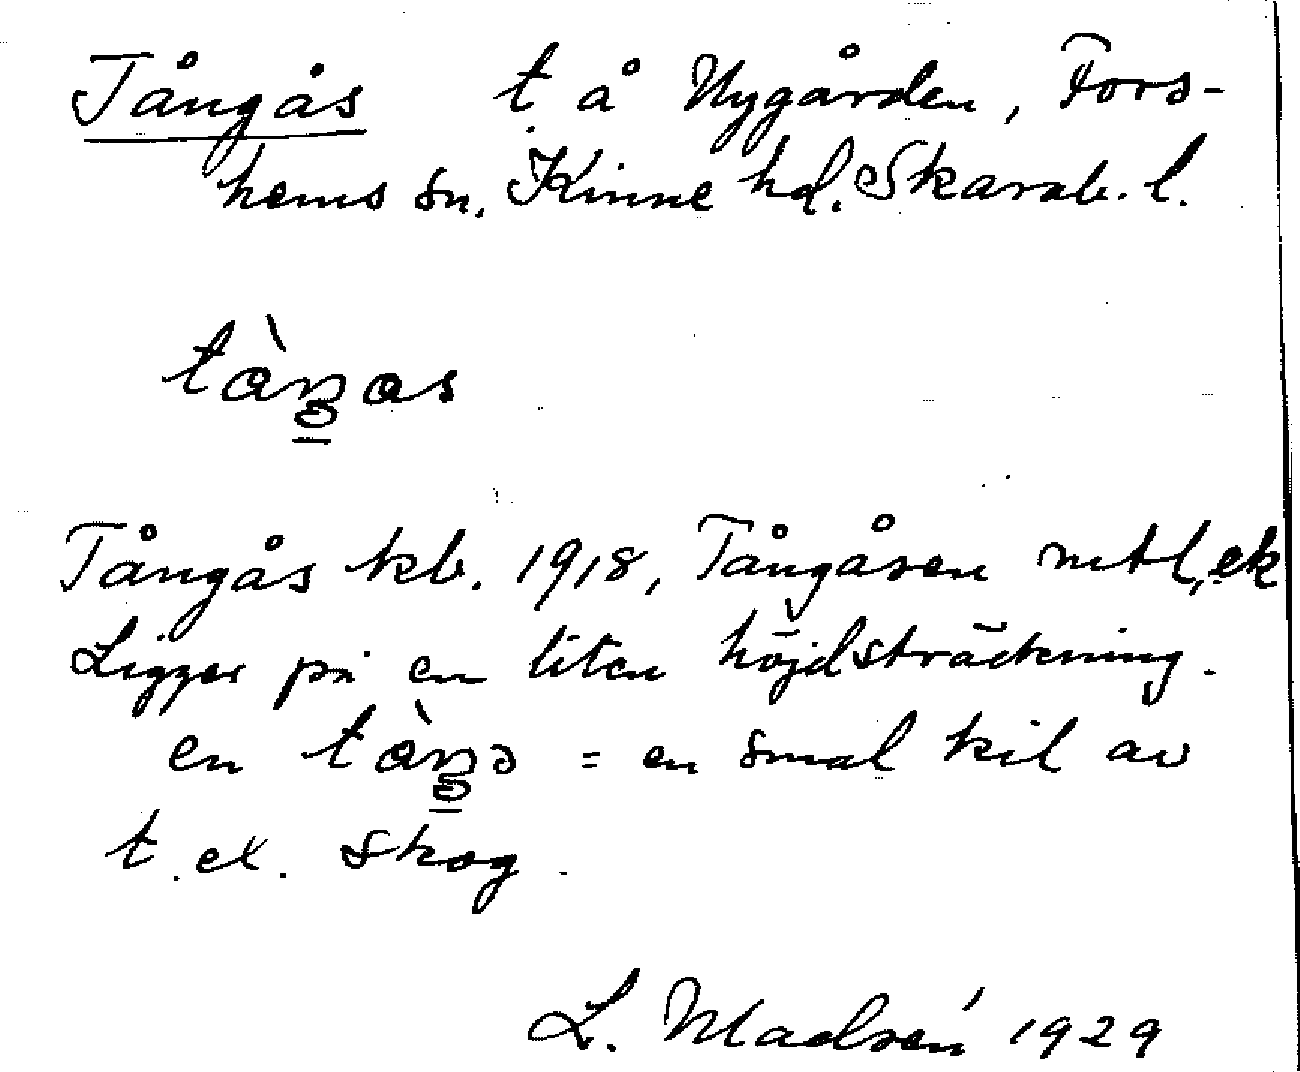 Tångås t å Nygården, Fors-
hems sn. Kinne hd. Skarab. l.
Tångås kb. 1918, Tångåsen mtl, ek
Ligger på en liten höjdsträckning.
en = en smal kil av
t. ex. skog.
L. Madsén 1929